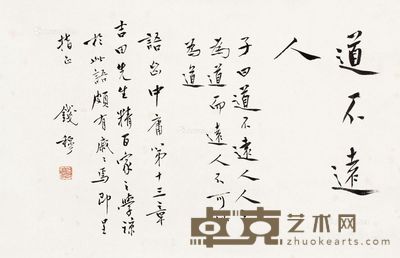 道不遠
人
子曰道不遠人人
為道而遠人不可
為道
語出中庸第十三章
吉田先生精百家之學諒
於此語頗有感焉即呈
指正
錢穆
卓克艺术网
zhuokearts.com